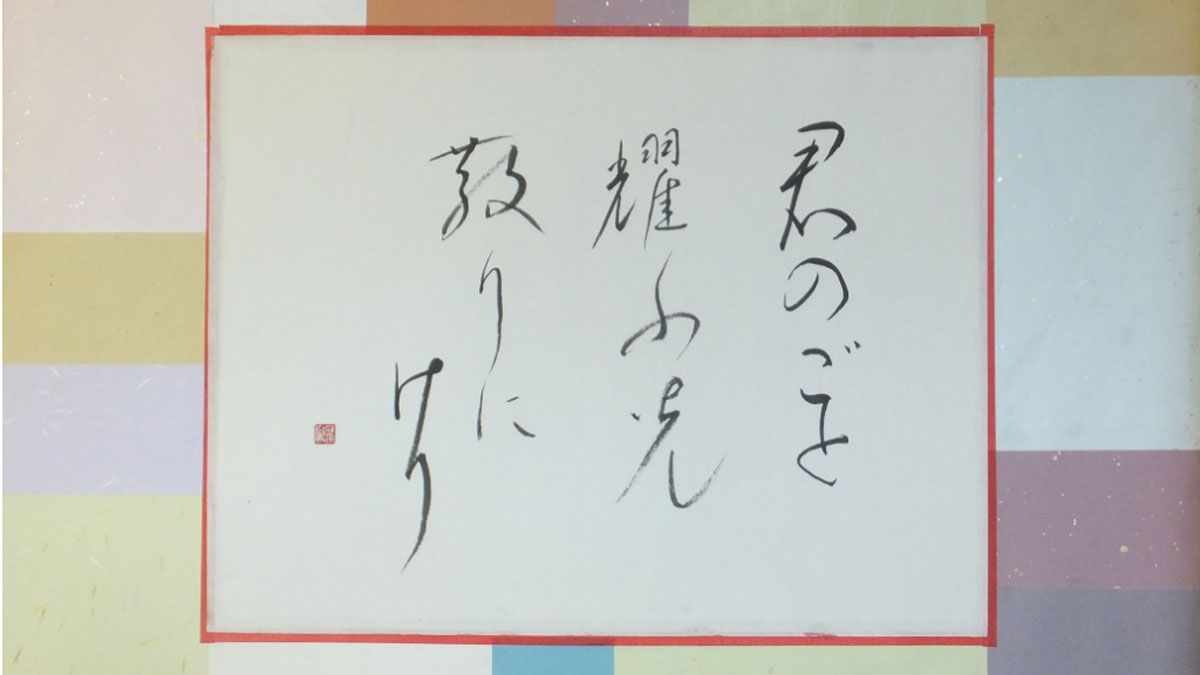 君のごと
耀ふ光
散りに
けり